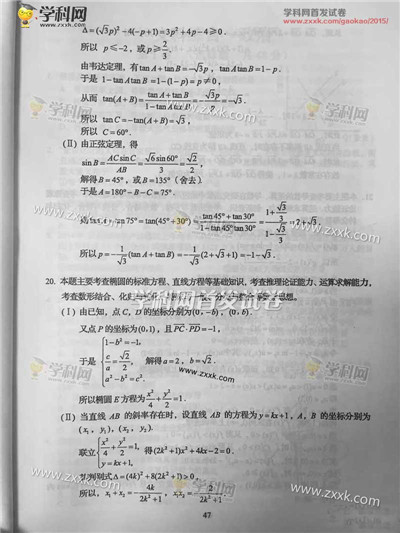 学科网
学科网首发试卷
www.zxxk.com/gaokao/2015/
Δ=(√3p)²-4(-p+1)=3p²+4p-4≥0.
所以 p≤-2, 或p≥2/3.
由韦达定理, 有tanA+tanB=-√3p, tanAtanB=1-p.
于是 1-tanAtanB=1-(1-p)=p≠0,
从而 tan(A+B)=(tanA+tanB)/(1-tanAtanB)=-√3p/p=-√3.
所以 tanC=-tan(A+B)=√3,
所以 C=60°.
(Ⅱ) 由正弦定理, 得
sinB=ACsinC/AB=√6sin60°/3=√2/2,
解得B=45°, 或B=135°(舍去).
于是A=180°-B-C=75°.
则tanA=tan75°=tan(45°+30°)=(tan45°+tan30°)/(1-tan45°tan30°)=(1+√3/3)/(1-√3/3)=2+√3.
所以p=-1/√3(tanA+tanB)=-1/√3(2+√3+1)=-1-√3.
20. 本题主要考查椭圆的标准方程、直线方程等基础知识, 考查推理论证能力、运算求解能力,
考查数形结合、化 思想.
学科网首发试卷
(Ⅰ) 由已知, 点C, D的坐标分别为(0,-b), (0,b).
又点P的坐标为(0,1), 且PC·PD=-1,
于是 {1-b²=-1, c/a=√2/2, a²-b²=c². 解得a=2, b=√2.
所以椭圆E方程为x²/4+y²/2=1.
(Ⅱ) 当直线 AB 的斜率存在时, 设直线 AB 的方程为y=kx+1, A, B 的坐标分别为
(x₁, y₁), (x₂, y₂).
联立{x²/4+y²/2=1, y=kx+1, 得(2k²+1)x²+4kx-2=0.
其判别式Δ=(4k)²+8(2k²+1)>0,
所以, x₁+x₂=-4k/(2k²+1), x₁x₂=-2/(2k²+1).
47
www.zxxk.com